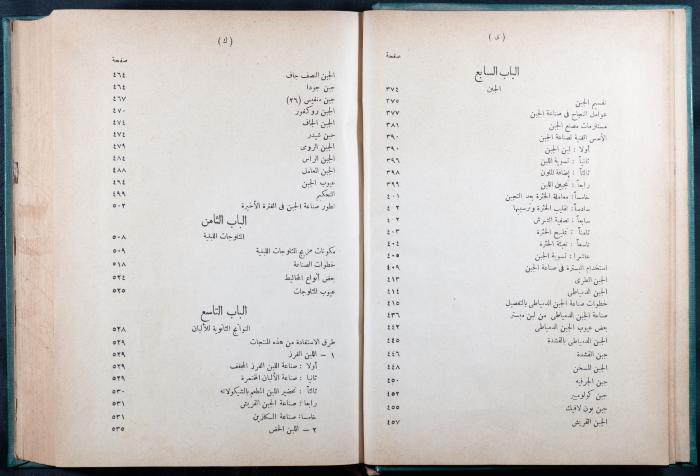 (ى)
صفحة
الباب السابع
الجبن ٣٧٤
تقسيم الجبن ٣٧٥
عوامل النجاح فى صناعة الجبن ٣٧٧
مستلزمات مصنع الجبن ٣٨٦
الأسس الفنية لصناعة الجبن ٣٩٠
أولا : لبن الجبن ٣٩٠
ثانياً : تسوية اللبن ٣٩٦
ثالثاً : إضافة الملون ٣٩٨
رابعاً : تجبن اللبن ٣٩٩
خامساً : معاملة الخثرة بعد التجبن ٤٠١
سادساً : تقليب الخثرة وترسيبها ٤٠٢
سابعاً : تصفية الشرش ٤٠٢
ثامناً : تمليح الخثرة ٤٠٣
تاسعاً : تعبئة الخثرة ٤٠٤
عاشراً : تسوية الجبن ٤٠٥
استخدام البسترة فى صناعة الجبن ٤٠٩
الجبن الطرى ٤١٣
الجبن الدمياطى ٤١٤
خطوات صناعة الجبن الدمياطى بالتفصيل ٤١٥
صناعة الجبن الدمياطى من لبن مبستر ٤٣٦
بعض عيوب الجبن الدمياطى ٤٤٢
الجبن الدمياطى بالقشدة ٤٤٥
جبن القشدة ٤٤٦
الجبن المسخن ٤٤٨
جبن الجرفيه ٤٥٠
جبن كولومبير ٤٥٢
جبن بون لافيك ٤٥٥
الجبن القريش ٤٥٧
(ك)
صفحة
الجبن النصف جاف ٤٦٤
جبن جودا ٤٦٤
جبن منفيس (٢٦) ٤٦٧
الجبن روكفور ٤٧٠
الجبن الجاف ٤٧٤
جبن شيدر ٤٧٤
الجبن الرومى ٤٧٩
الجبن الراس ٤٨٤
الجبن المعامل ٤٨٨
عيوب الجبن ٤٩٤
التحكيم ٤٩٩
تطور صناعة الجبن فى الفترة الأخيرة ٥٠٢
الباب الثامن
المثلوجات اللبنية ٥٠٨
مكونات مزيج المثلوجات اللبنية ٥٠٩
خطوات الصناعة ٥١٨
بعض أنواع المخاليط ٥٢٤
عيوب المثلوجات ٥٢٥
الباب التاسع
النواتج الثانوية للألبان ٥٢٨
طرق الاستفادة من هذه المنتجات ٥٢٩
١ - اللبن الفرز ٥٢٩
أولا : صناعة اللبن الفرز المجفف ٥٢٩
ثانيا : صناعة الألبان المتخمرة ٥٢٩
ثالثاً : تحضير اللبن المطعم بالشيكولاته ٥٣٠
رابعا : صناعة الجبن القريش ٥٣١
خامسا : صناعة السكازين ٥٣١
٢ - اللبن الخض ٥٣٥